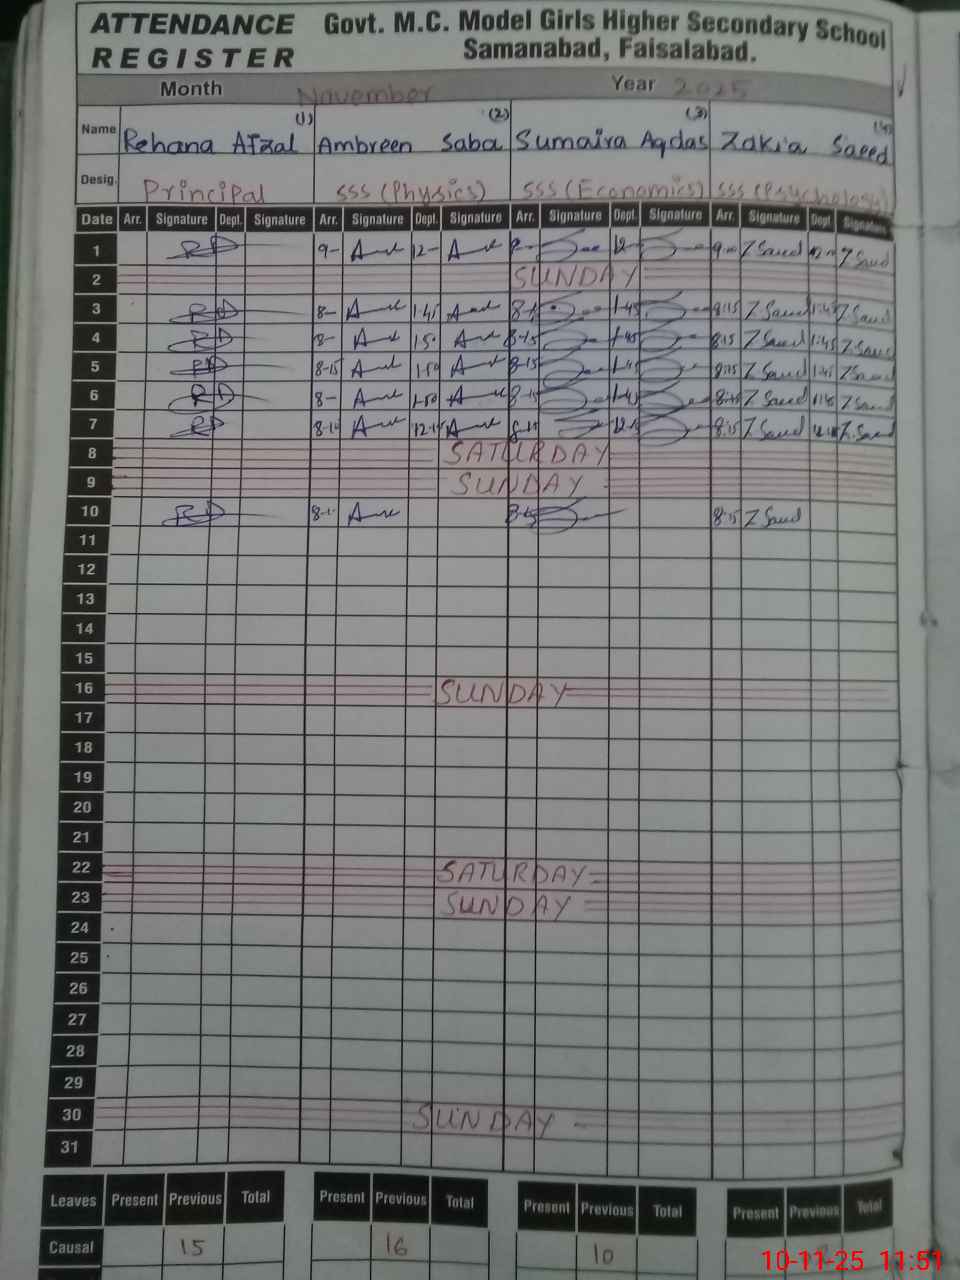 ATTENDANCE REGISTER
Govt. M.C. Model Girls Higher Secondary School
Samanabad, Faisalabad.
Month November Year 2025
(1) (2) (3) (4)
Name Rehana Afzal Ambreen Saba Sumaira Aqdas Zakia Saeed
Desig. Principal SSS (Physics) SSS (Economics) SSS (Psychology)
Date Arr. Signature Dept. Signature Arr. Signature Dept. Signature Arr. Signature Dept. Signature Arr. Signature Dept. Signature
1 9- 12- 12 Z Saeed Z Saeed
2 SUNDAY
3 8- 1-45 1-45 8:15 Z Saeed Z Saeed
4 8- 150 8-15 1-45 8:15 Z Saeed 1:45 Z Saeed
5 8-15 1-50 8-15 8:15 Z Saeed Z Saeed
6 8- 1-50 8-15 Z Saeed Z Saeed
7 8:15 Z Saeed Z Saeed
8 SATURDAY
9 SUNDAY
10 8:15 Z Saeed
11
12
13
14
15
16 SUNDAY
17
18
19
20
21
22 SATURDAY
23 SUNDAY
24
25
26
27
28
29
30 SUNDAY
31
Leaves Present Previous Total Present Previous Total Present Previous Total Present Previous Total
Causal 15 16 10
10-11-25 11:51